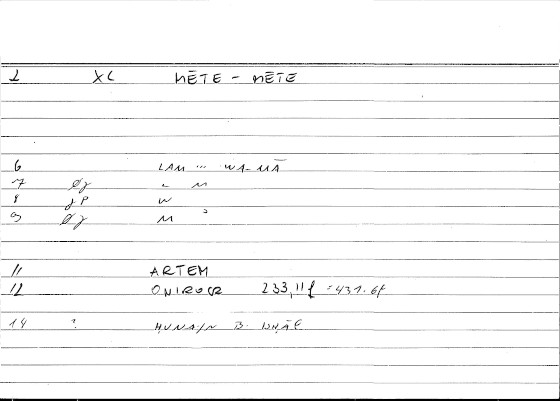 1 XC MĒTE - MĒTE
6 LAM ... WA-MĀ
7 Øγ " M
8 γP W
9 Øγ M ?
11 ARTEM
12 ONIROCR 233,11f =431.6f
14 ? HUNAIN B.